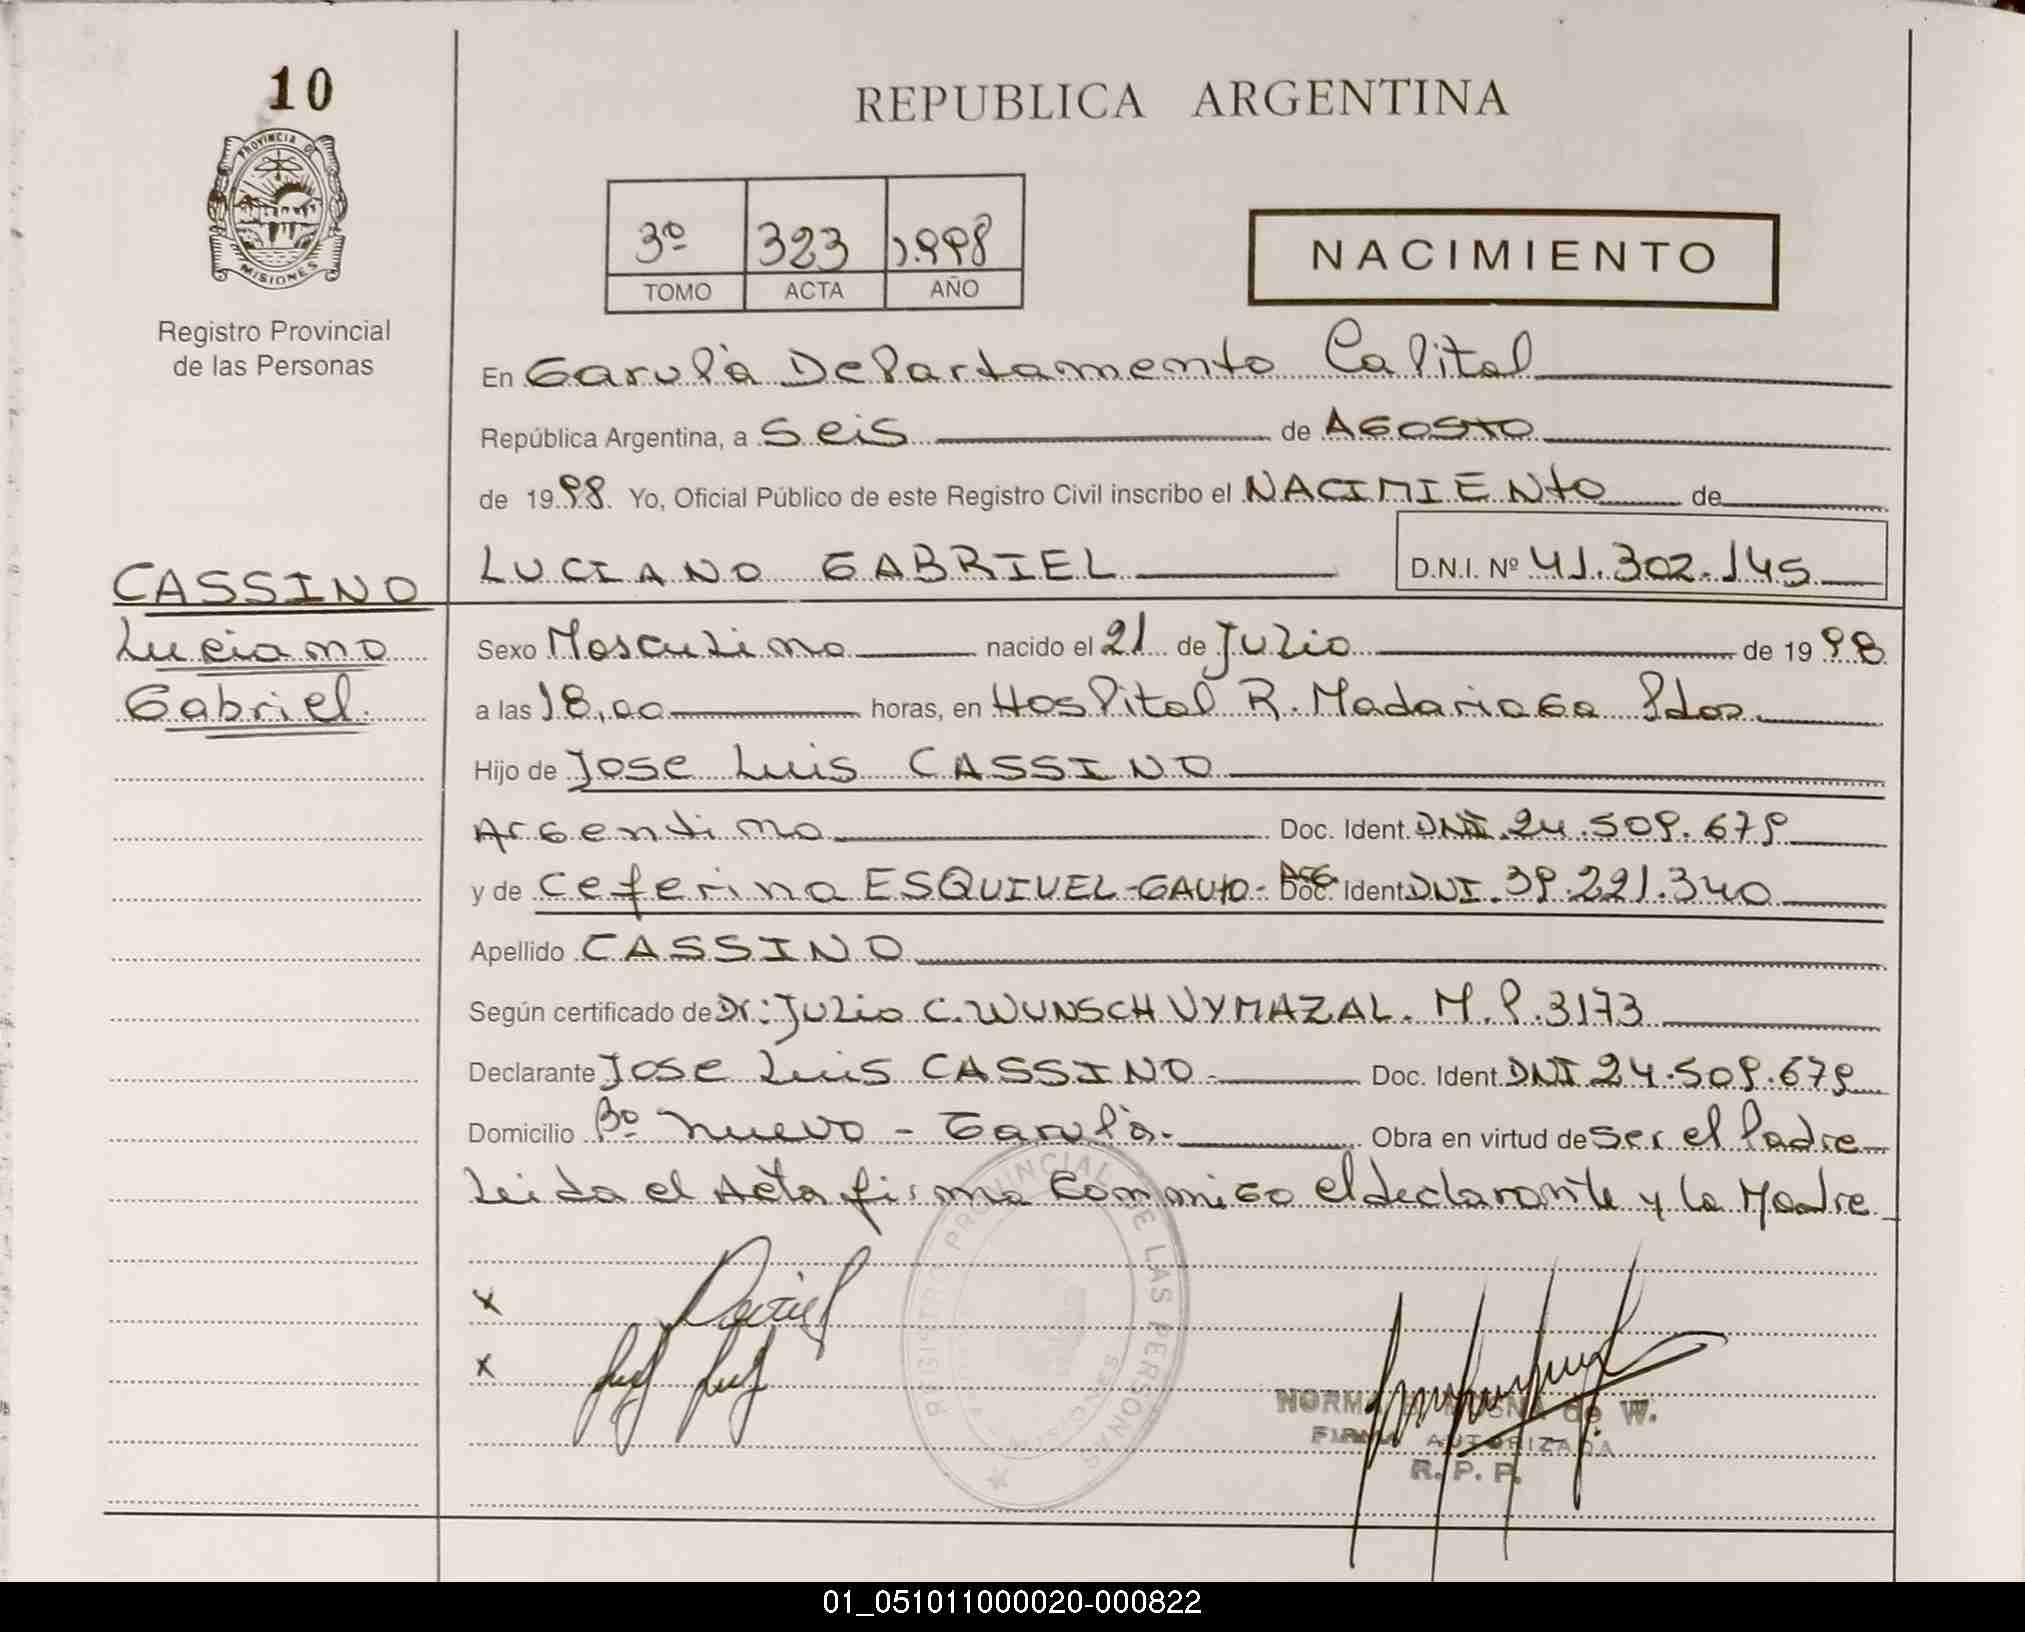 10
REPUBLICA ARGENTINA
PROVINCIA DE
MISIONES
Registro Provincial
de las Personas
3º 323 1.998
TOMO ACTA AÑO
NACIMIENTO
En Garupá Departamento Capital
República Argentina, a seis de AGOSTO
de 1998. Yo, Oficial Público de este Registro Civil inscribo el NACIMIENTO de
LUCIANO GABRIEL D.N.I. Nº 41.302.145
CASSINO
Luciano
Gabriel.
Sexo Masculino nacido el 21 de Julio de 1998
a las 18,00 horas, en Hospital R. Madariaga Pdas.
Hijo de Jose Luis CASSINO
Argentino Doc. Ident. DNI. 24.509.679
y de Ceferina ESQUIVEL-GAUTO- ARG. Doc. Ident DNI. 39.221.340
Apellido CASSINO
Según certificado de Dr: Julio C. WUNSCH VYMAZAL. M.P. 3173
Declarante Jose Luis CASSINO- Doc. Ident. DNI 24.509.679
Domicilio Bº Nuevo - Garupá. Obra en virtud de ser el Padre
Leida el Acta firma conmigo el declarante y la Madre
X
X
REGISTRO PROVINCIAL DE LAS PERSONAS
MISIONES
NORMA de W.
FIRMA AUTORIZADA
R. P. P.
01_051011000020-000822